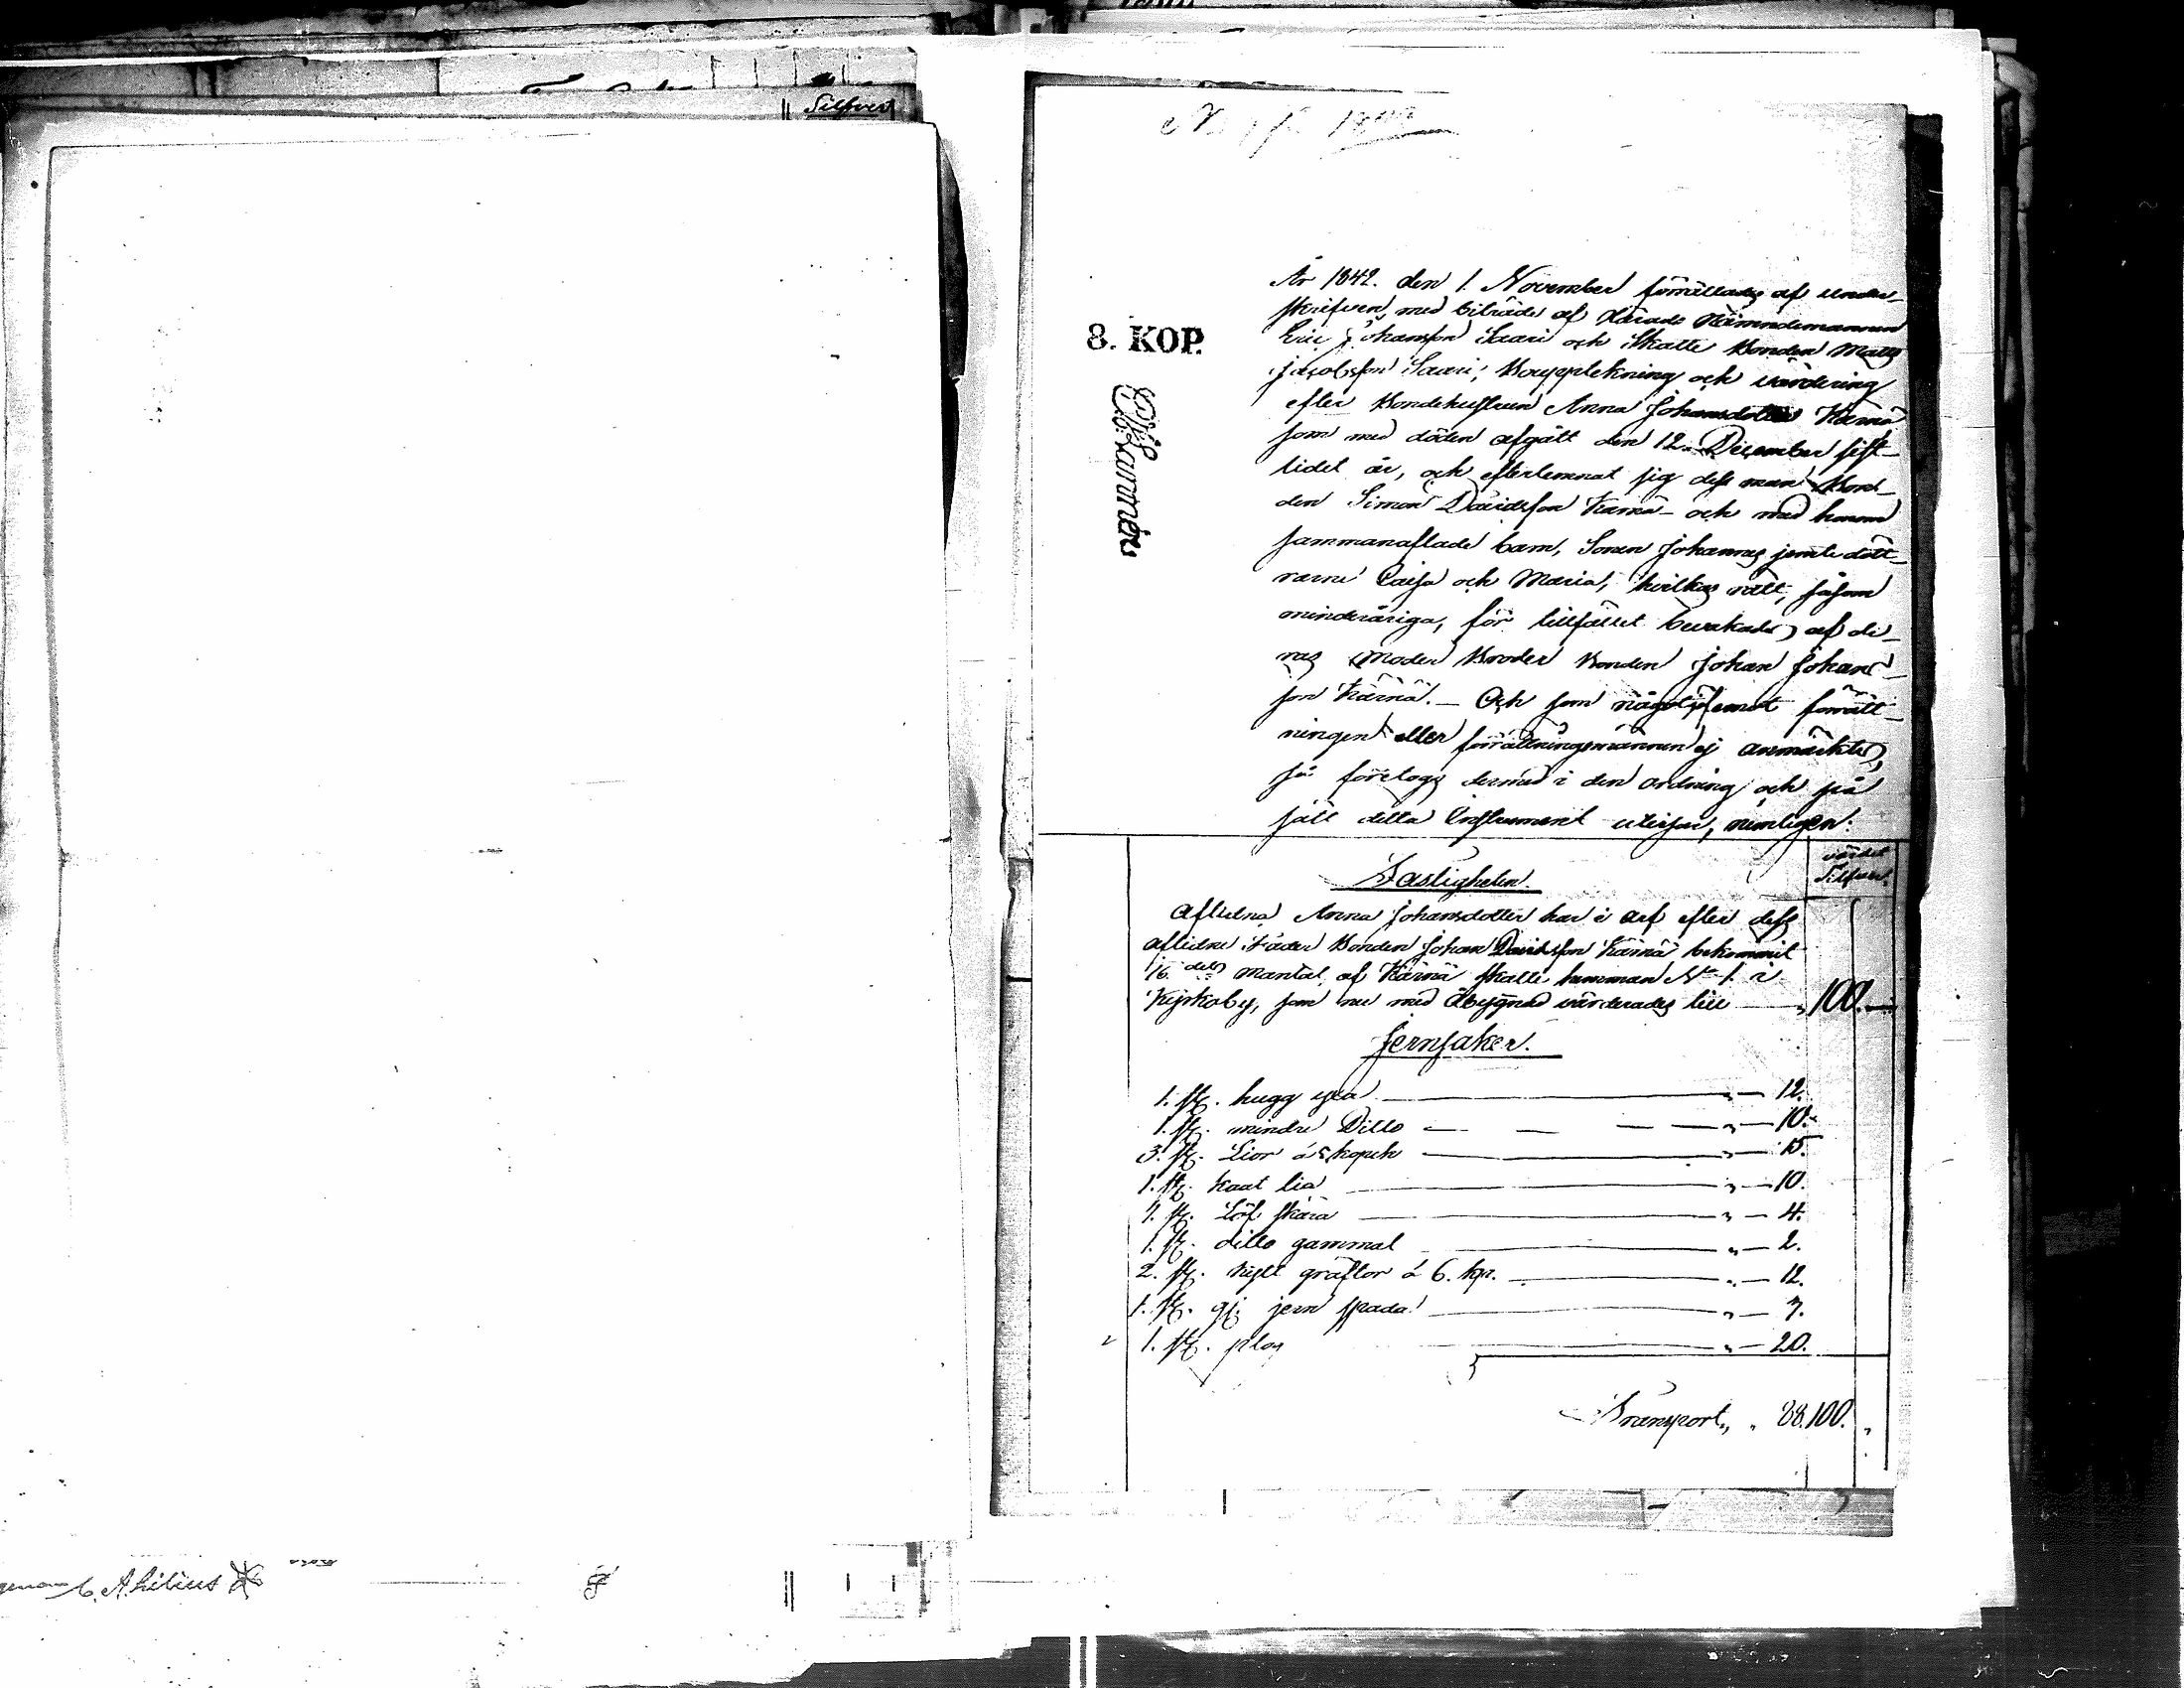 Silfver
8. KOP.
År 1842. den 1. November förrättades af under-
skrifven, med biträde af Härads Nämndemannen
Eric Johansson Saari och Skatte Bonden Matts
Jacobsson Saari, Bouppteckning och värdering
efter Bondehustrun Anna Johansdotter Kärnä
som med döden afgått den 12. December sist-
lidet år, och efterlemnat sig dess man Bon-
den Simon Davidsson Kärnä - och med honom
sammanaflade barn, Sonen Johannes jemte dött-
rarne Caisa och Maria, hvilkas rätt, såsom
minderåriga, för tillfället bevakades af de-
ras Moder Broder Bonden Johan Johans-
son Kärnä. - Och som något emot förrätt-
ningen eller förrättningsmännen ej anmärktes,
så företogs dermed i den ordning och på
sätt detta Instrument utvisar, nemligen:
värdet
Silfver.
Fastigheten.
Aflidna Anna Johansdotter har i arf efter dess
aflidne Fader Bonden Johan Davidsson Kärnä bekommit
16 dels mantal af Kärnä Skatte hemman No 1. i
Kyrkoby, som nu med åbygnad värderades till 100.
Jernsaker.
1. st. hugg yxa " — 12.
1. st. mindre Ditto " — 10.
3. st. Lior á 5 kopek " — 15.
1. st. kaat lia " — 10.
1. st. Löf skära " — 4.
1. st. ditto gammal " — 2.
2. st. gräftor á 6. kop. " — 12.
1. st. gj. jern spada " — 3.
1. st. plog " — 20.
Transport " 88. 100.
C. Ahlius